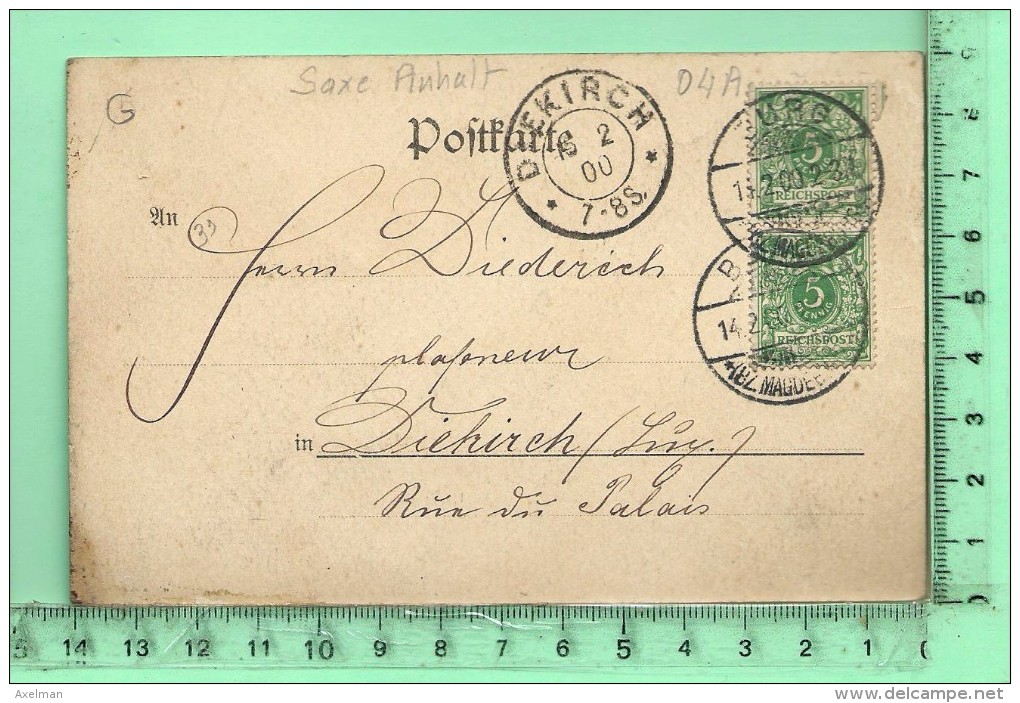 Saxe Anhalt
04A
G
DIEKIRCH
2
00
7-8S.
Postkarte
URG
5
REICHSPOST
(BZ. MAGDE
An
33
Herrn Diederich
B
5
PFENNIG
REICHSPOST
14.2
*(BZ. MAGDEB
in Diekirch (Lux.)
Rue du Palais
14 13 12 11 10 9 8 7 6 5 4 3 2 1 0
9
8
7
6
5
4
3
2
1
0
Axelman
www.delcampe.net